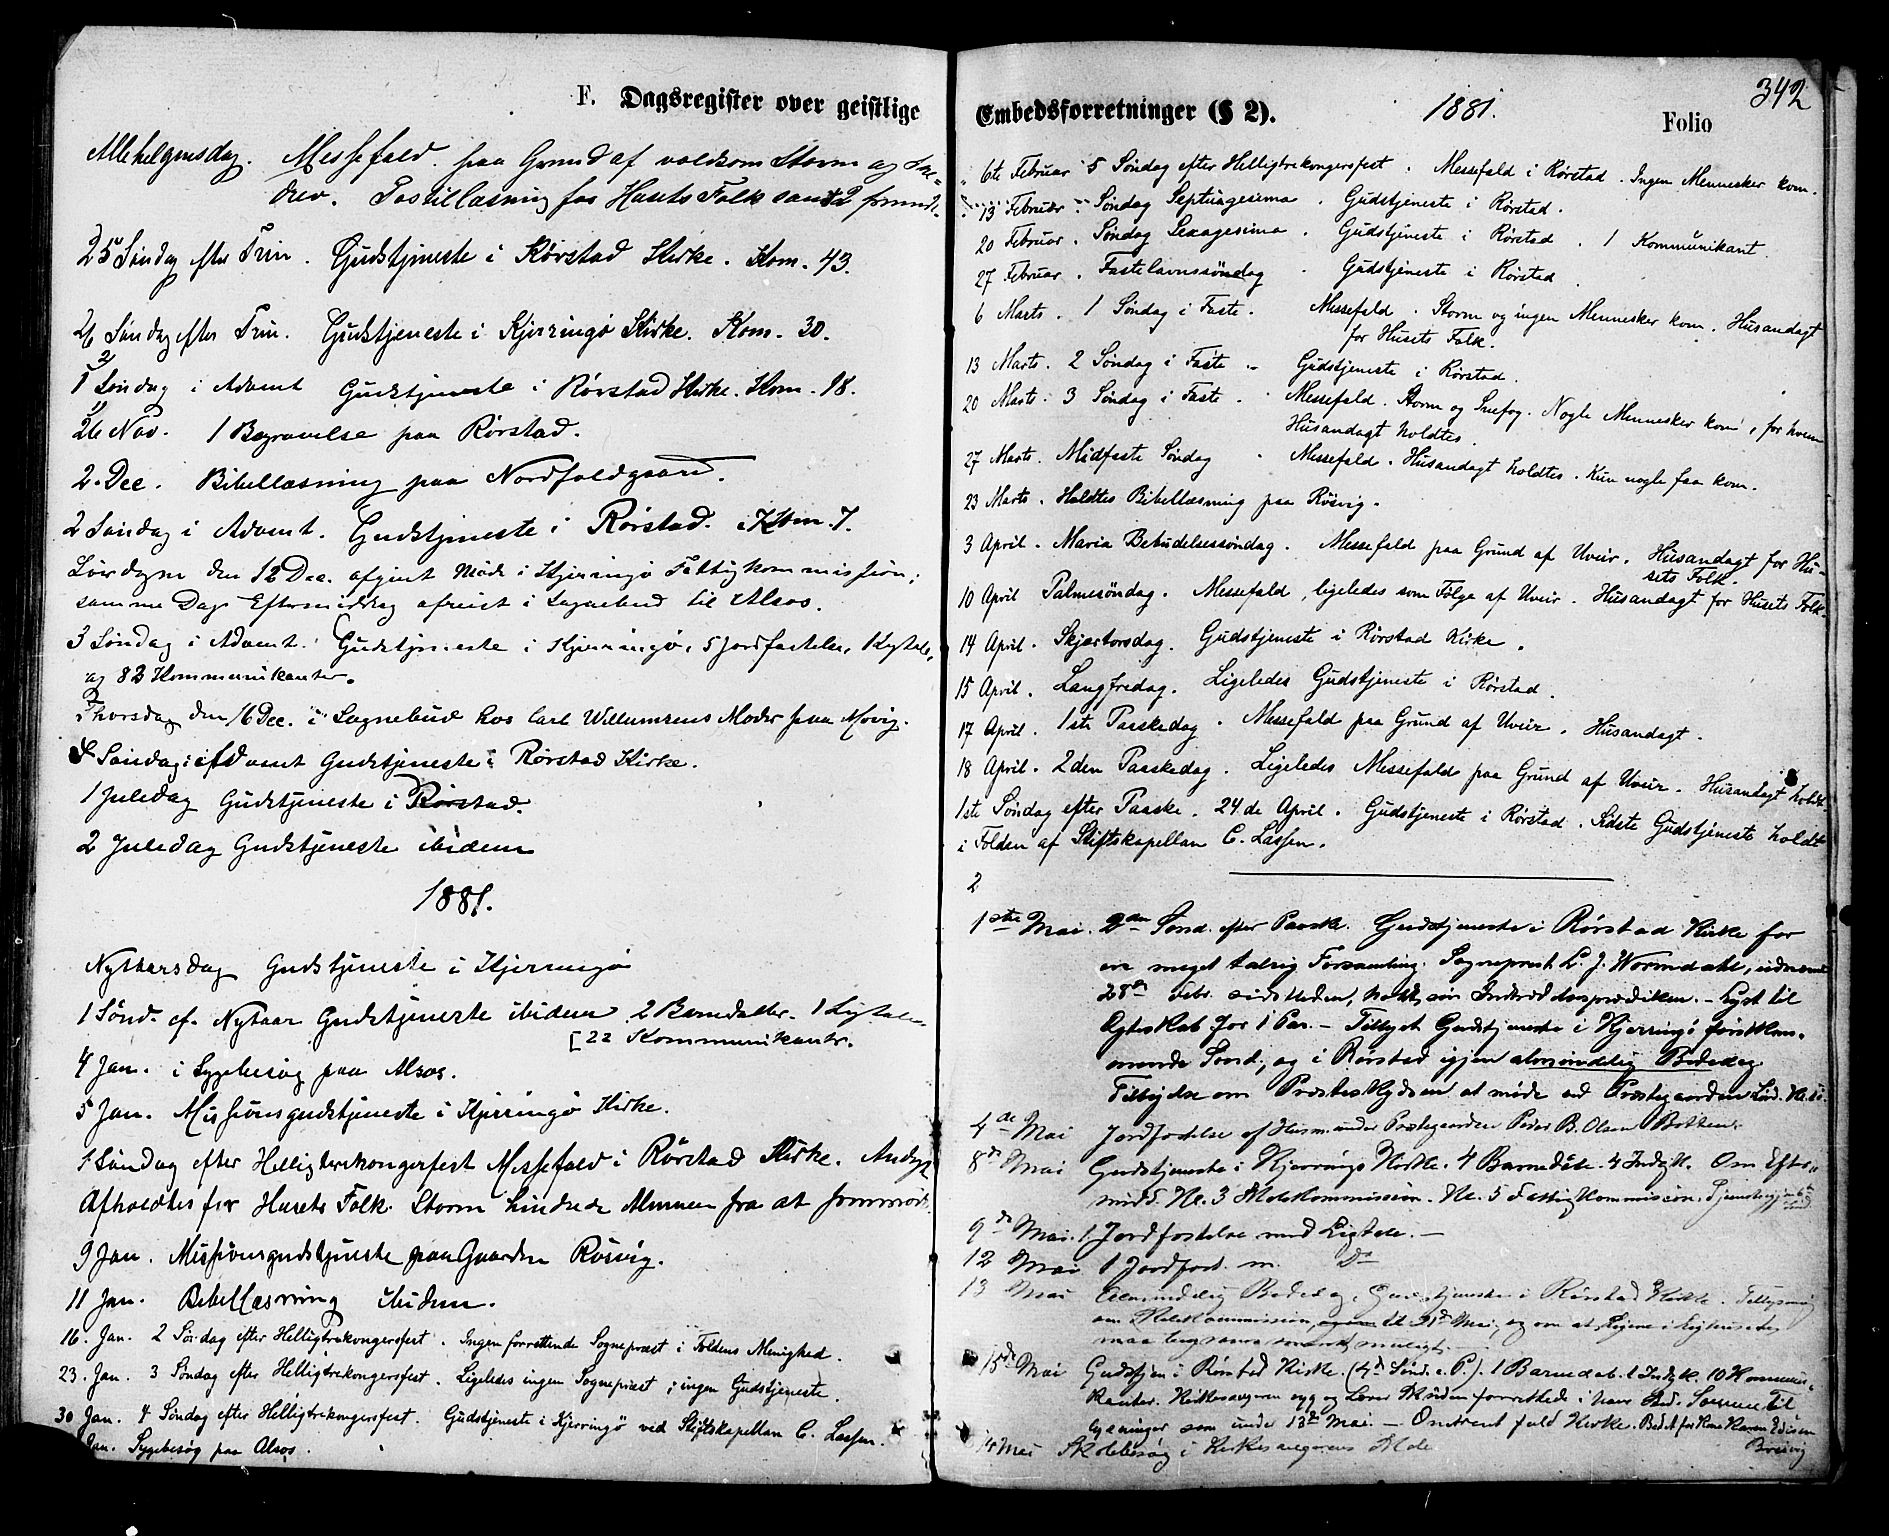 F. Dagsregister over geistlige
Allehelgensdag. Messefald paa Grund af voldsom Storm og Sne-
drev. Postillæsning for Husets Folk samt 2 fremmde.
25 Søndag efter Trin. Gudstjeneste i Rørstad Kirke. Kom. 43.
26 Søndag efter Trin. Gudstjeneste i Kjerringø Kirke. Kom. 30.
2) 1 Søndag i Advent Gudstjeneste i Rørstad Kirke. Kom. 18.
1) 26 Nov. 1 Begravelse paa Rørstad.
2. Dec. Bibellæsning paa Nordfoldgaard.
2 Søndag i Advent. Gudstjeneste i Rørstad. Kom. 7.
Lørdagen den 12 Dec. afgivt Møde i Kjerringø Fattigkommission;
samme Dags Eftermiddag afreist i Sognebud til Alsos.
3 Søndag i Advent. Gudstjeneste i Kjerringø. 5 Jordfæstelser, 1 Ligtale,
og 83 Kommunikanter.
Thorsdag den 16 Dec. i Sognebud hos Carl Willumsens Moder paa Movig.
4 Søndag i Advent Gudstjeneste i Rørstad Kirke.
1 Juledag Gudstjeneste i Rørstad.
2 Juledag Gudstjeneste ibidem
1881.
Nytaarsdag Gudstjeneste i Kjerringø
1 Sönd. ef. Nytaar Gudstjeneste ibidem 2 Barnedaab. 1 Ligtale
[22 Kommunikanter.
4 Jan. i Sygebesøg paa Alsos.
5 Jan. Missionsgudstjeneste i Kjerringø Kirke.
1 Søndag efter Helligtrekongerfest Messefald i Rørstad Kirke. Andagt
Afholdtes for Husets Folk. Storm hindrede Almuen fra at fremmøde.
9 Jan. Missionsgudstjeneste paa Gaarden Røsvig.
11 Jan. Bibellæsning ibidem.
16. Jan. 2 Søndag efter Helligtrekongersfest. Ingen forrettende Sognepræst i Foldens Menighed.
23. Jan. 3 Søndag efter Helligtrekongersfest. Ligeledes ingen Sognepræst; ingen Gudstjeneste.
30 Jan. 4 Søndag efter Helligtrekongersfest. Gudstjeneste i Kjerringø ved Stiftskapellan C. Lassen.
Jan. Sygebesøg paa Alsos.
Embedsforretninger (§ 2). 1881. Folio 342
6te Februar 5 Søndag efter Helligtrekongersfest. Messefald i Rørstad. Ingen Mennesker kom.
13 Februar. Søndag Septuagesima. Gudstjeneste i Rørstad.
20 Februar. Søndag Sexagesima. Gudstjeneste i Rørstad. 1 Kommunikant.
27 Februar. Fastelavnssøndag. Gudstjeneste i Rørstad.
6 Marts. 1 Søndag i Faste. Messefald. Storm og ingen Mennesker kom. Husandagt
for Husets Folk.
13 Marts. 2 Søndag i Faste. Gudstjeneste i Rørstad.
20 Marts. 3 Søndag i Faste. Messefald. Storm og Snefog. Nogle Mennesker kom, for hvem
Husandagt holdtes.
27 Marts. Midfaste Søndag. Messefald. Husandagt holdtes. Kun nogle faa kom.
23 Marts. Holdtes Bibellæsning paa Røsvig.
3 April. Maria Bebudelsessøndag. Messefald paa Grund af Uveir. Husandagt for Hu-
sets Folk.
10 April Palmesöndag. Messefald, ligeledes som Følge af Uveir. Husandagt for Husets Folk.
14 April. Skjærtorsdag. Gudstjeneste i Rørstad Kirke.
15 April. Langfredag. Ligeledes Gudstjeneste i Rørstad.
17 April. 1ste Paaskedag. Messefald paa Grund af Uveir. Husandagt.
18 April. 2den Paaskedag. Ligeledes Messefald paa Grund af Uveir. Husandagt holdt.
1ste Søndag efter Paaske. 24de April. Gudstjeneste i Rørstad. Sidste Gudstjeneste holdt
i Folden af Stiftskapellan C. Lassen.
2
1ste Mai. 2den Sönd. efter Paask. Gudstjeneste i Rørstad Kirke for
en meget talrig Forsamling. Sognepræst L. J. Wormdahl, udnævnt
28de Febr. sidstleden, holdt sin Indtrædelsesprædiken. – Lyst til
Ægteskab for 1 Par. – Tillyst Gudstjeneste i Kjerringø førstkom-
mende Sönd., og i Rørstad igjen almindelig Bededag.
Tilsigelse om Præsteskydsen at møde ved Præstegaarden Lörd. Kl.
4de Mai Jordfæstelse af Husm. under Præstegaarden Peder B. Olsen Botten.
8de Mai Gudstjeneste i Kjerringø Kirke. 4 Barnedåb. 4 Indgk. Om Efter-
midd. Kl. 3 Skolekommission. Kl. 5 Fattigkommission.
9de Mai. 1 Jordfæstelse med Ligtale. –
12 Mai 1 Jordfæst. m. Do
13 Mai Almindelig Bededag. Gudstjeneste i Rørstad Kirke. Tillysning
om Skolekommission, til 21de Mai, og om at
maa muligt.
15de Mai Gudstjen i Rørstad Kirke. (4de Sönd. e. P.). 1 Barnedaab. 1 Indgk. 10 Kommuni-
kanter. Kirkesangeren syg og Lærer forrettede i hans Sted. Samme Til-
lysninger som under 13de Mai. – Omtrent fuld Kirke. Bedet for Karen Edisen
Breivig
14 Mai Skolebesøg i Kirkesangerens Skole